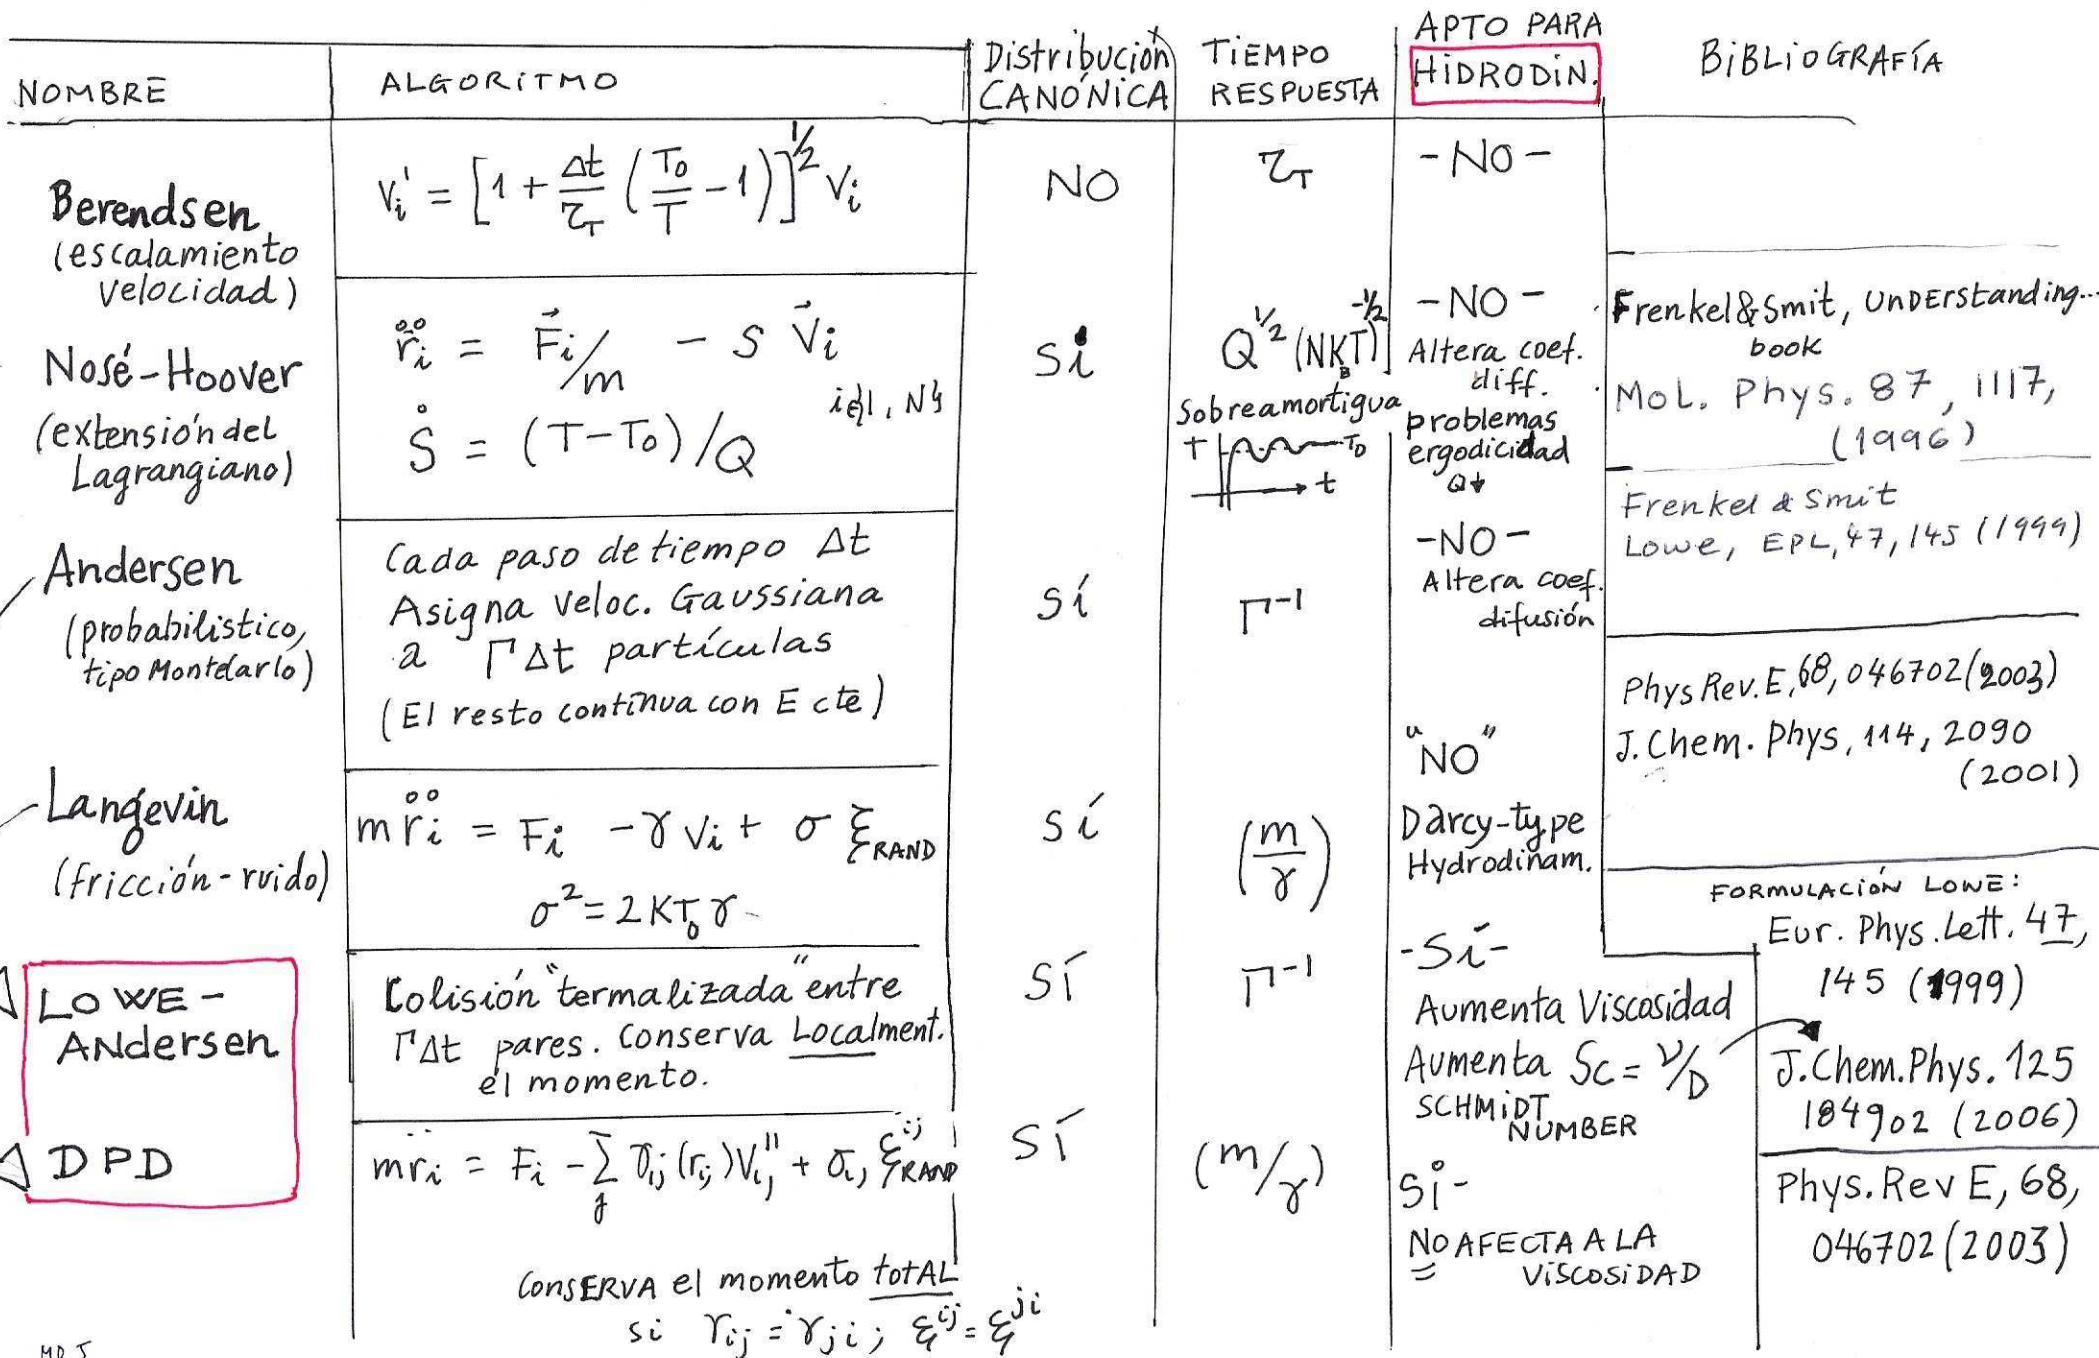 NOMBRE
ALGORITMO
Distribución
CANÓNICA
TIEMPO
RESPUESTA
APTO PARA
HIDRODIN.
BIBLIOGRAFÍA
Berendsen
(escalamiento
velocidad)
Vᵢ' = [1 + Δt/τ_T (T₀/T - 1)]^½ Vᵢ
NO
τ_T
- NO -
Nosé-Hoover
(extensión del
Lagrangiano)
r̈ᵢ = F⃗ᵢ/m - S V⃗ᵢ
Ṡ = (T - T₀)/Q
Sí
Q^½ (NK_BT)^-½
Sobreamortigua
T T₀
t
- NO -
Altera coef.
diff.
problemas
ergodicidad
Q↓
Frenkel & Smit, UNDErstanding...
book
Mol. Phys. 87, 1117,
(1996)
Andersen
(probabilistico,
tipo MonteCarlo)
Cada paso de tiempo Δt
Asigna veloc. Gaussiana
a ΓΔt partículas
(El resto continua con E cte)
Sí
Γ⁻¹
- NO -
Altera coef.
difusión
Frenkel & Smit
Lowe, EPL, 47, 145 (1999)
Langevin
(fricción - ruido)
m r̈ᵢ = Fᵢ - γ Vᵢ + σ ξ_RAND
σ² = 2KT₀γ
Sí
(m/γ)
"NO"
Darcy-type
Hydrodinam.
Phys Rev. E, 68, 046702 (2003)
J. Chem. Phys, 114, 2090
(2001)
LOWE -
ANdersen
Colisión "termalizada" entre
ΓΔt pares. Conserva Localment.
el momento.
SÍ
Γ⁻¹
- Sí -
Aumenta Viscosidad
Aumenta Sc = ν/D
SCHMIDT
NUMBER
FORMULACIÓN LOWE:
Eur. Phys. Lett. 47,
145 (1999)
J. Chem. Phys. 125
184902 (2006)
DPD
m r̈ᵢ = Fᵢ - Σⱼ γᵢⱼ (rᵢⱼ) Vᵢⱼ" + σᵢⱼ ξ^ij_RAND
CONSERVA el momento totAL
si γᵢⱼ = γⱼᵢ ; ξ^ij = ξ^ji
SÍ
(m/γ)
Sí -
NO AFECTA A LA
VISCOSIDAD
Phys. Rev E, 68,
046702 (2003)